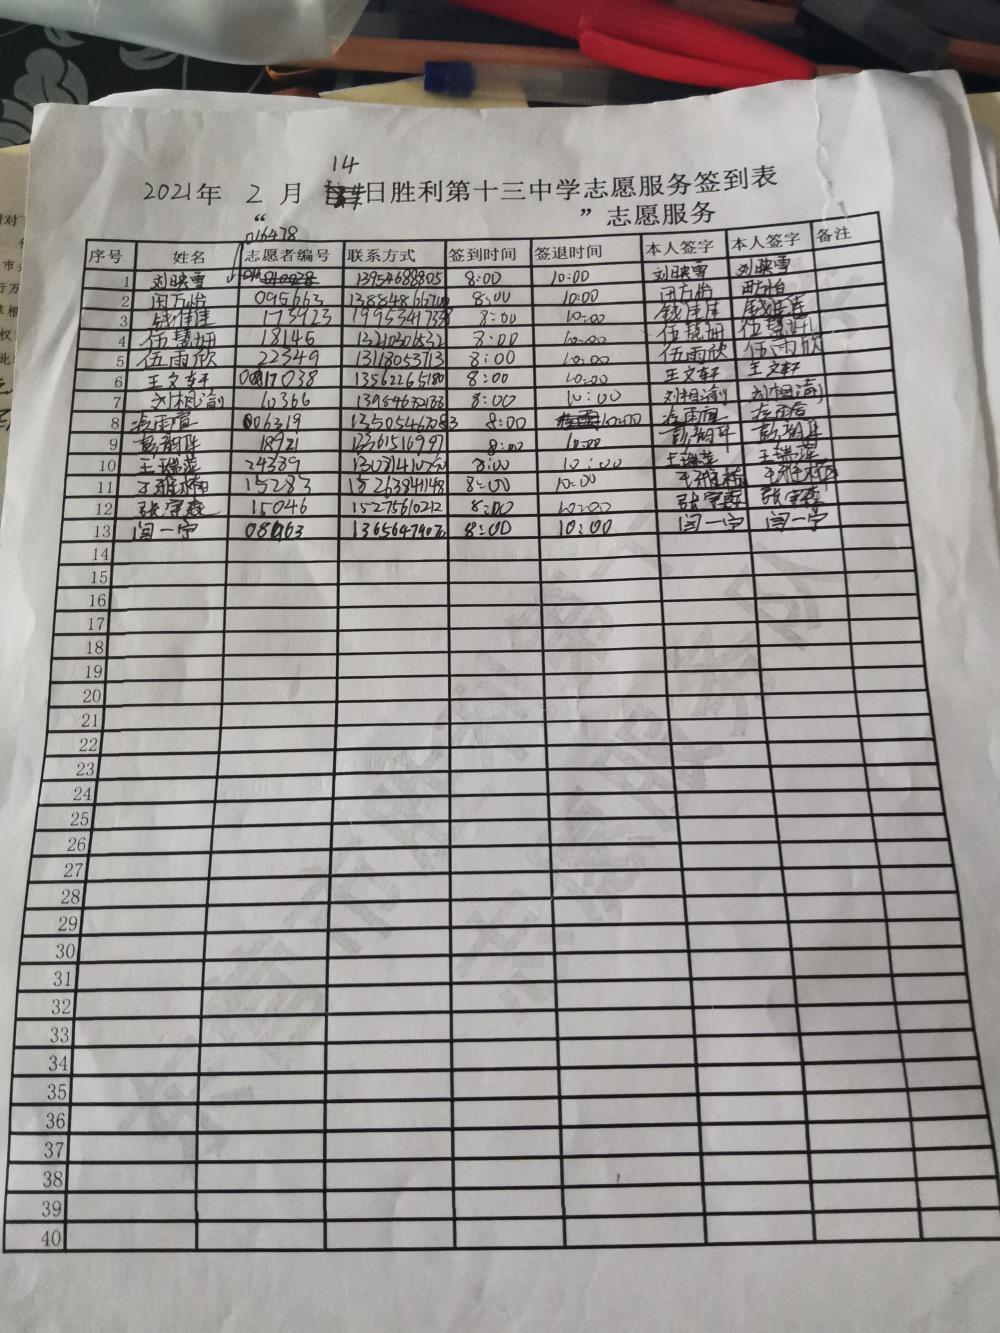 14
2021年 2 月 日胜利第十三中学志愿服务签到表
“ ”志愿服务
016478
序号 姓名 志愿者编号 联系方式 签到时间 签退时间 本人签字 本人签字 备注
1 刘映雪 13954688805 8:00 10:00 刘映雪 刘映雪
2 闵方怡 095663 8:00 10:00 闵方怡
3 钱佳佳 173923 8:00 10:00 钱佳佳 钱佳佳
4 伍慧珊 18146 8:00 10:00 伍慧珊 伍慧珊
5 伍雨欣 22349 13118053713 8:00 10:00 伍雨欣 伍雨欣
6 王文轩 17038 13562265180 8:00 10:00 王文轩 王文轩
7 刘相渝 10366 8:00 10:00 刘相渝 刘相渝
8 006319 8:00 10:00
9 8:00 10:00
10 王瑞萍 24389 8:00 10:00 王瑞萍 王瑞萍
11 15283 15263841148 8:00 10:00
12 张宇森 15046 15275610212 8:00 10:00 张宇森 张宇森
13 闫一宁 8:00 10:00 闫一宁 闫一宁
14
15
16
17
18
19
20
21
22
23
24
25
26
27
28
29
30
31
32
33
34
35
36
37
38
39
40